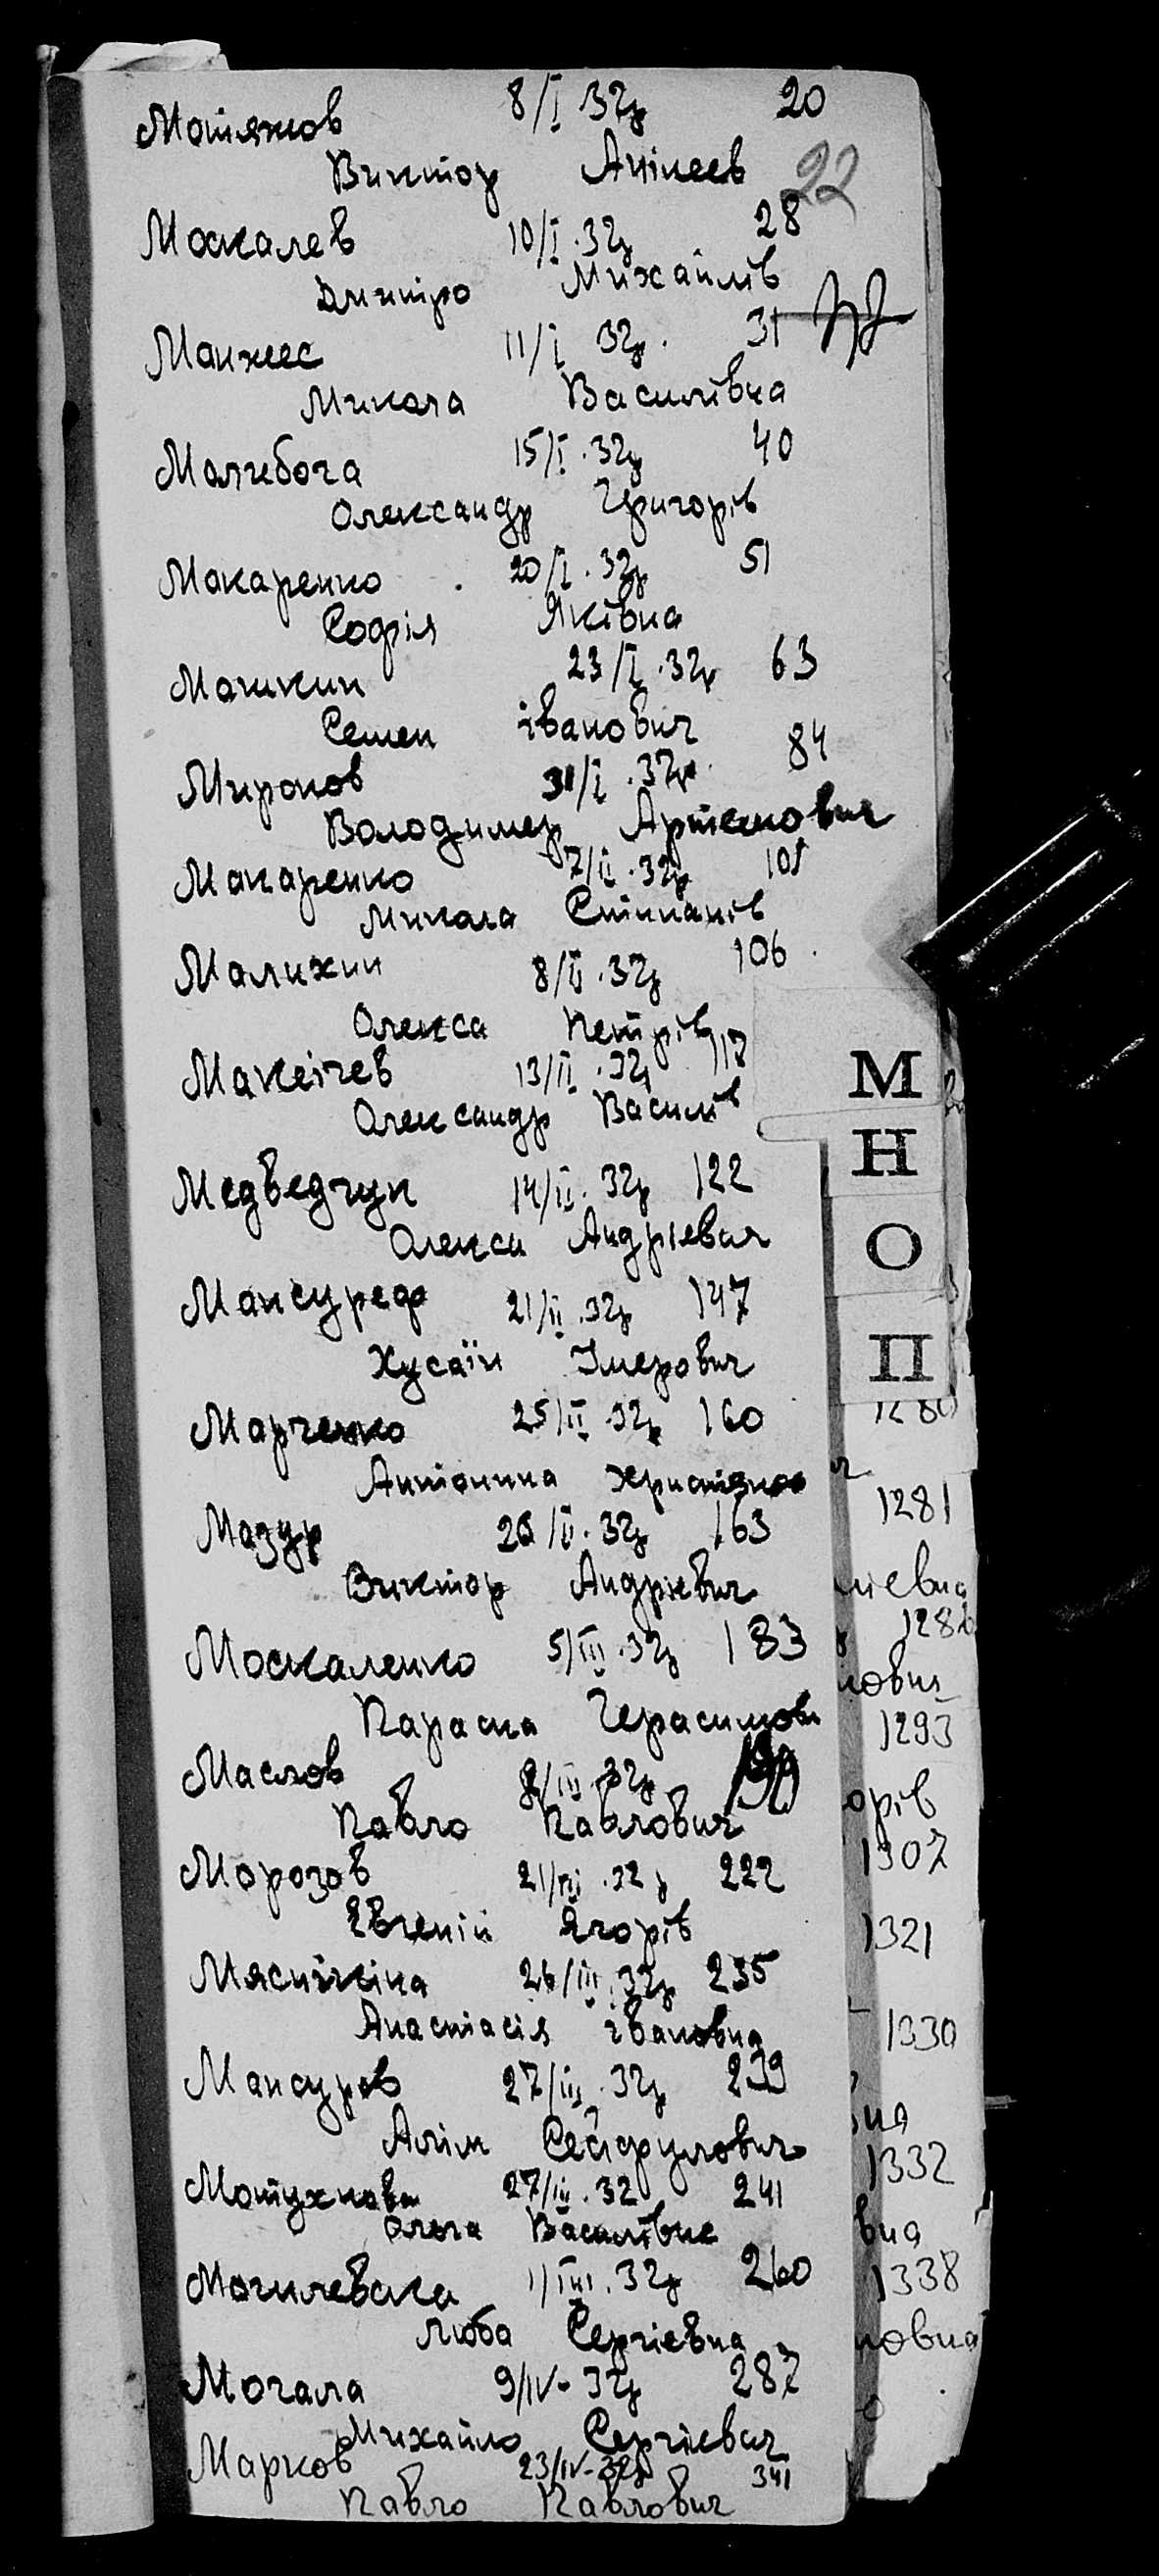 Мотяков 8/I 32р 20
Виктор Анікеев 22
Москалев 10/I.32р 28
Дмитро Михайлів
Манжес 11/I 32р. 31
Микола Василівна
Малибога 15/I.32р 40
Олександр Григорів
Макаренко 20/I.32р 51
Софія Яківна
Машкин 23/I.32р 63
Семен іванович
Миронов 31/I.32р. 84
Володимер Артемович
Макаренко 7/II.32р 101
Микола Стіпанів
Малихин 8/II.32р 106
Олекса Петрів
Макеічев 13/II.32р 117
Олександр Василів
Медведчук 14/II.32р 122
Олекси Андрієвич
Мансуреф 21/II.32р 147
Хусаїн Імерович
Марченко 25/II.32р 160
Антонина
Мазур 26/II.32р 163
Виктор Андрієвич
Москаленко 5/III.32р 183
Параска Герасимовн
Маслов 8/III.32р 190
Павло Павлович
Морозов 21/III.32р 222
Євгеній Ягорів
Мяснікіна 26/III.32р 235
Анастасія івановна
Мансуров 27/III.32р 239
Алім Сейфулович
Мотузкова 27/III.32 241
Ольга Василівне
Могилевска 1/IIII.32р 260
Люба Сергієвна
Могала 9/IV-32р 287
Михайло Сергієвич
Марков 23/IV-32р 341
Павло Павлович
М
Н
О
П
1280
1281
1286
1293
орів
1307
1321
1330
1332
вна
1338
новна